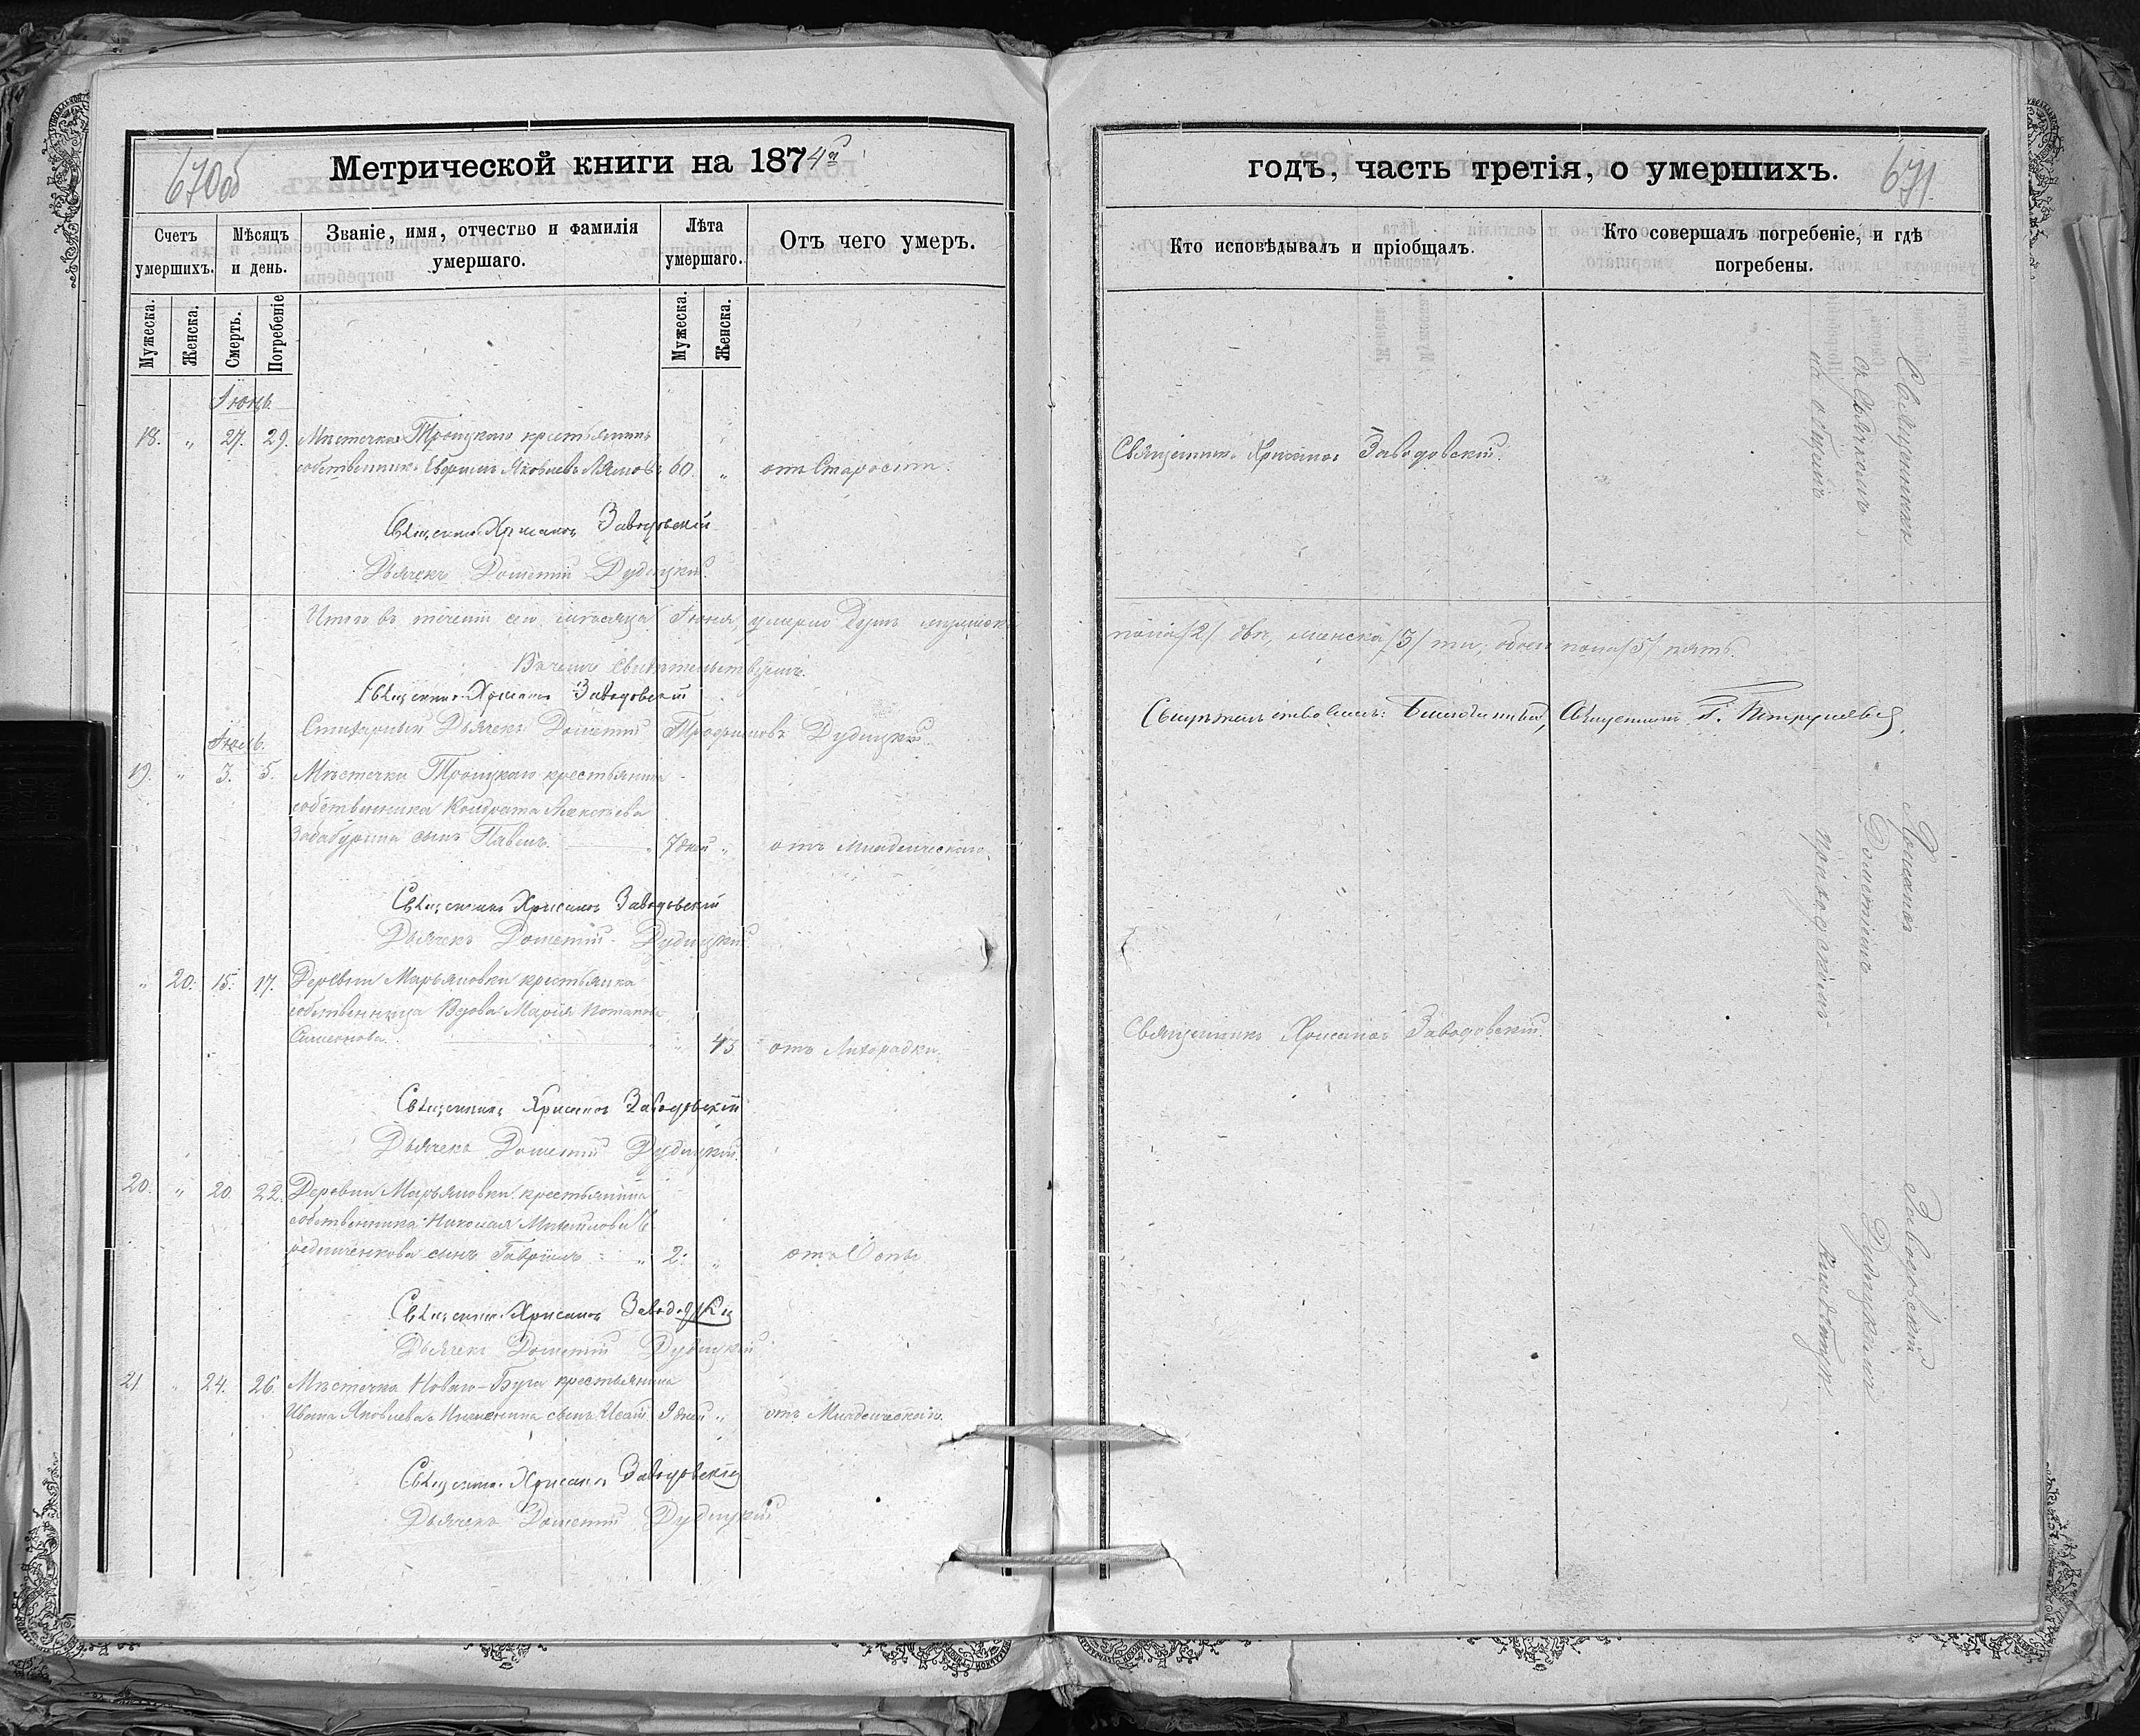 670об
Метрической книги на 1874й
Счетъ умершихъ.
Мѣсяцъ и день.
Званіе, имя, отчество и фамилія умершаго.
Лѣта умершаго.
Отъ чего умеръ.
Мужеска.
Женска.
Смерть.
Погребеніе
Мужеска.
Женска.
Іюнь.
18. " 27. 29. Мѣстечка Троицкаго крестьянинъ
собственникъ Евдокимъ Яковлевъ 60. " отъ Старости.
Священникъ Хрисанѳъ Заводовскій
Дьячекъ Дометій Дудицкій.
Итого въ теченіи сего мѣсяца Іюня, умерло Душъ мужеска
Въ чемъ свидѣтельствуемъ.
Священникъ Хрисанѳъ Заводовскій
Стихарный Дьячекъ Дометій Трофимовъ Дудицкій
Іюль.
19. " 3. 5. Мѣстечка Троицкаго крестьянина
собственника Кондрата Алексѣева
сынъ Павелъ. 7 дней " отъ Младенческаго.
Священникъ Хрисанѳъ Заводовскій
Дьячекъ Дометій Дудицкій
" 20. 15. 17. Деревни Марьяновки крестьянка
собственница Вдова Марія Потапова
Симонова. " 45 отъ Лихорадки.
Священникъ Хрисанѳъ Заводовскій
Дьячекъ Дометій Дудицкій.
20. " 20. 22. Деревни Марьяновки крестьянина
собственника Николая Михайлова
сынъ Гавріилъ " 2. " отъ Оспы
Священникъ Хрисанѳъ Заводовскій
Дьячекъ Дометій Дудицкій
21 " 24. 26. Мѣстечка Новаго-Буга крестьянина
Ивана Яковлева сынъ 9 дней " отъ Младенческаго.
Священникъ Хрисанѳъ Заводовскій
Дьячекъ Дометій Дудицкій
годъ, часть третія, о умершихъ.
671
Кто исповѣдывалъ и пріобщалъ.
Кто совершалъ погребеніе, и гдѣ погребены.
Священникъ Хрисанѳъ Заводовскій.
пола /2/ два, женска /3/ три, обоего пола /5/ пять.
Свидѣтельствовалъ: Благочинный, Священникъ Г.
Священникъ Хрисанѳъ Заводовскій.
Священникъ Хрисанѳъ Заводовскій
съ Дьячкомъ Дометіемъ Дудицкимъ
на общемъ приходскомъ кладбищѣ.